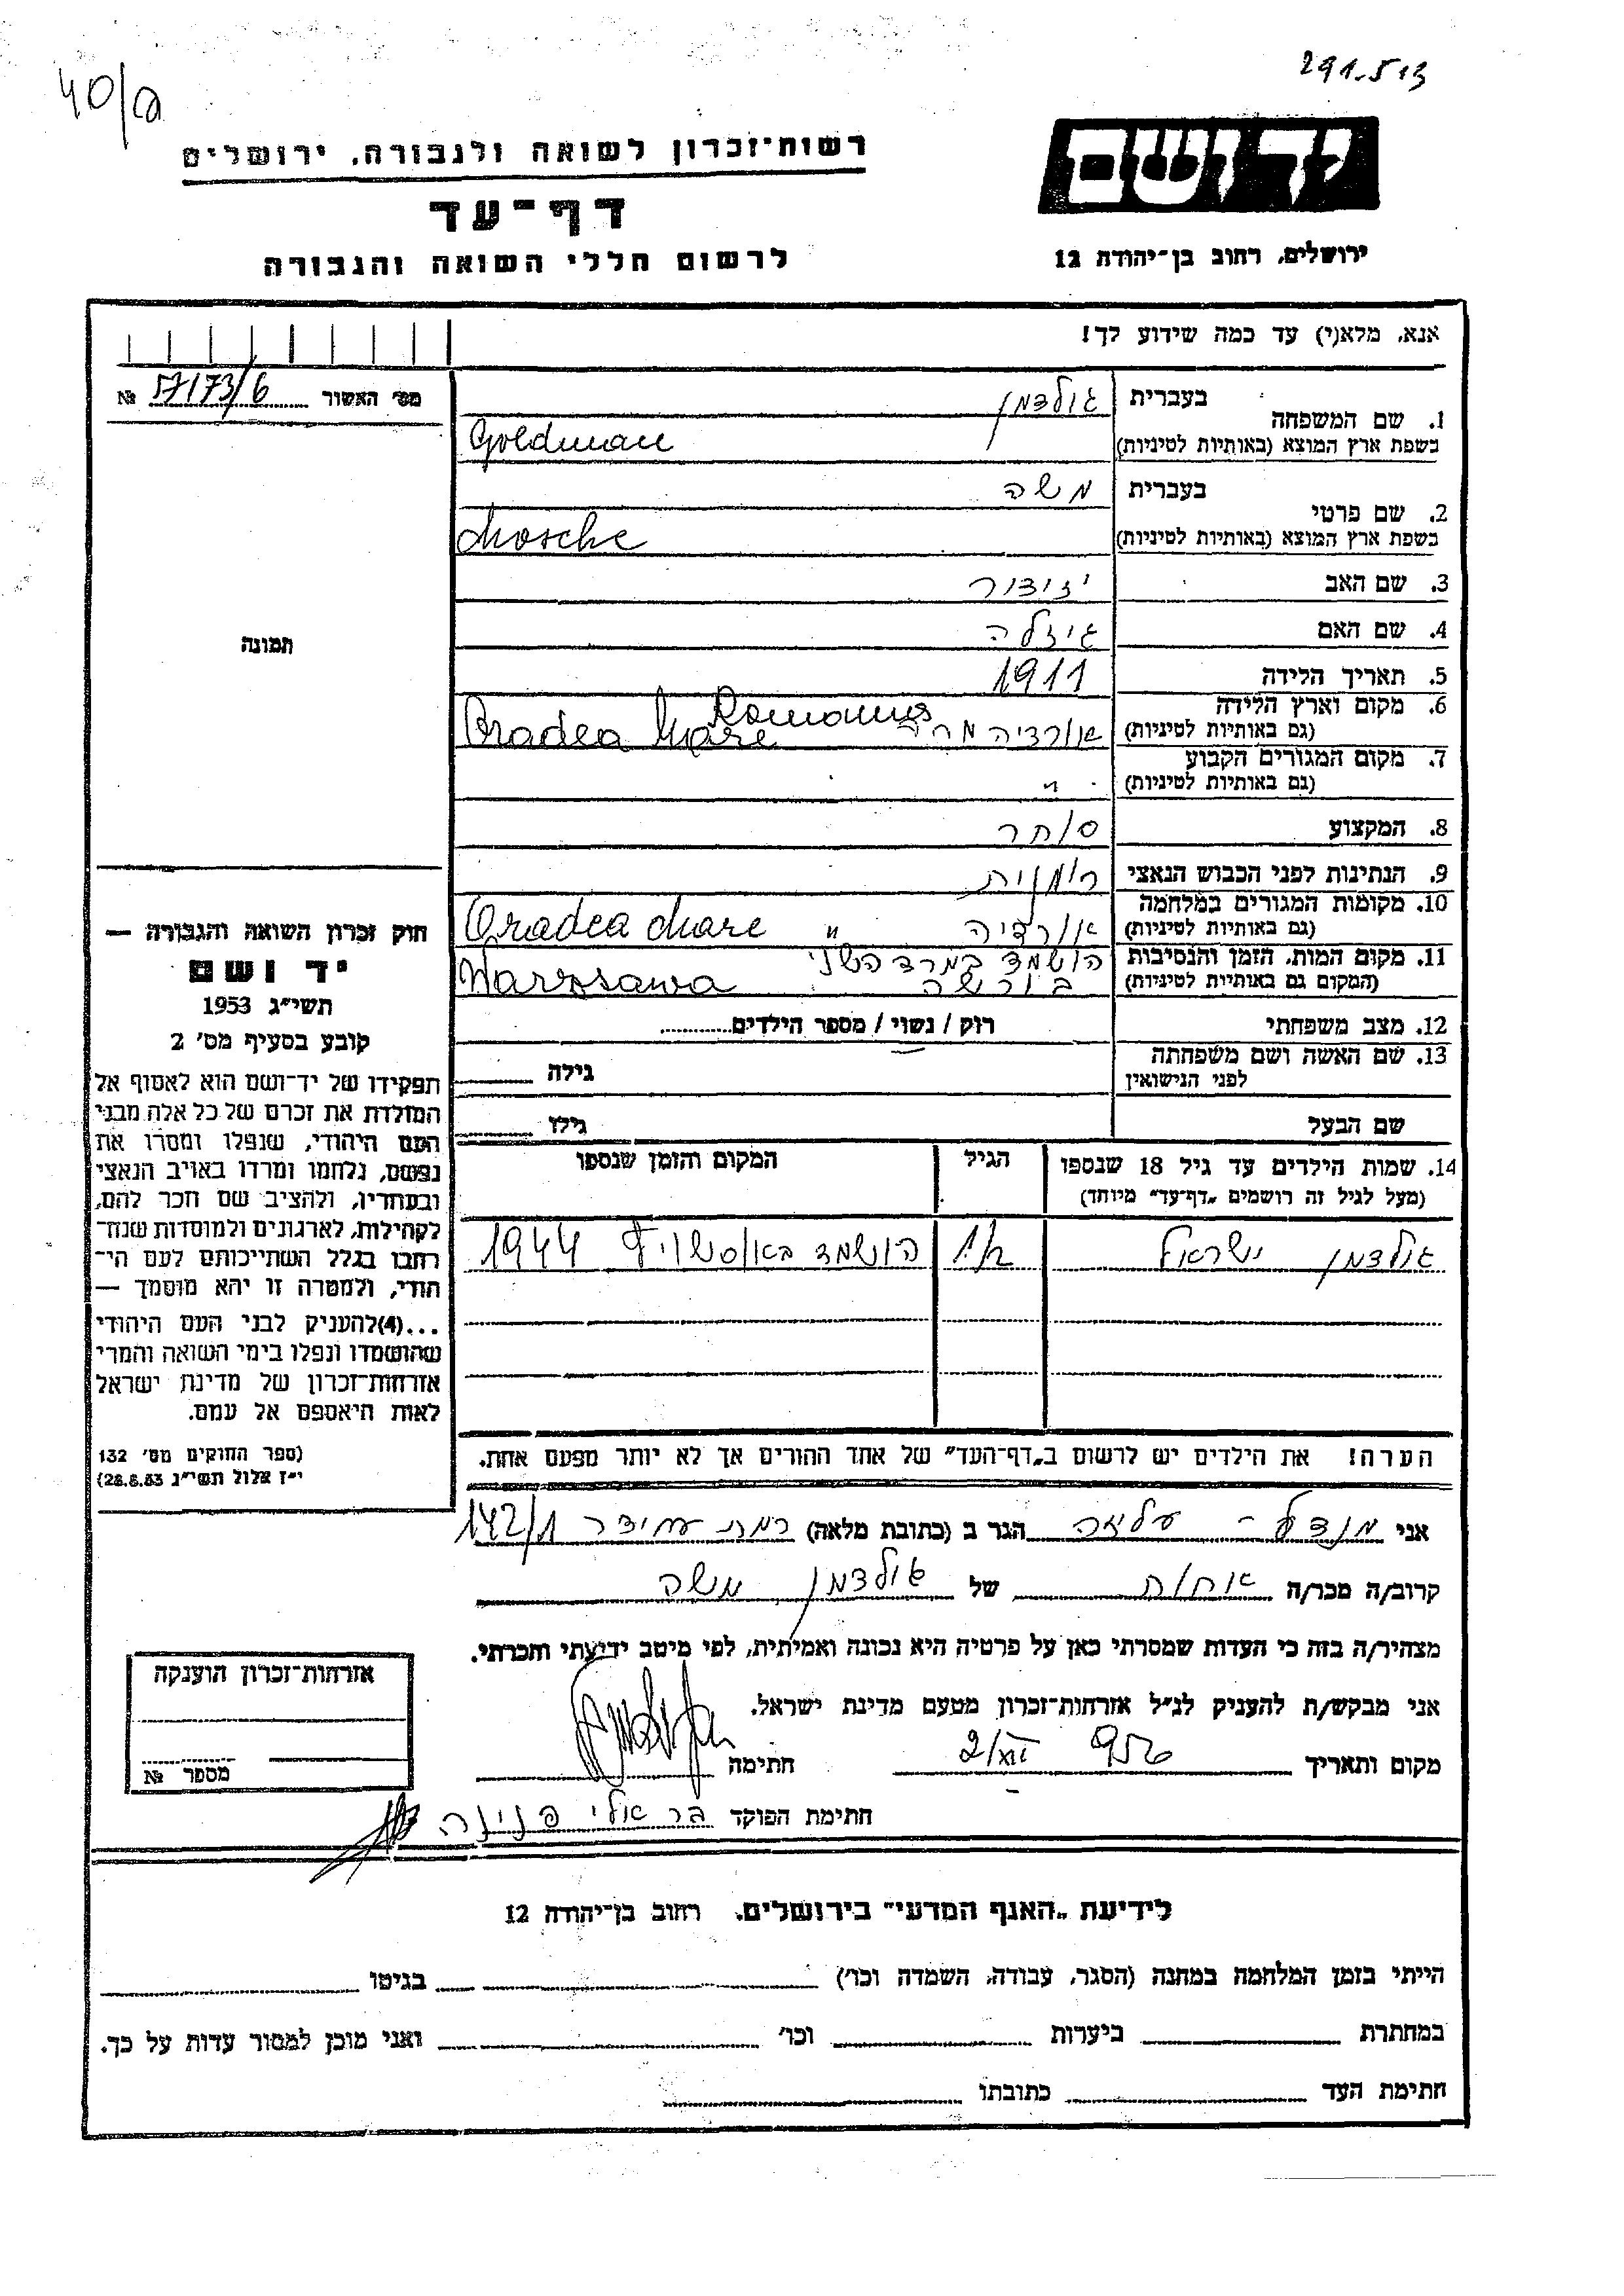 40/a
291.513
רשות־זכרון לשואה ולגבורה, ירושלים
דף־עד
לרשום חללי השואה והגבורה
יד ושם
ירושלים, רחוב בן־יהודה 12
אנא, מלא(י) עד כמה שידוע לך!
מס׳ האשור 57173/6 №
תמונה
1. שם המשפחה בעברית גולדמן
בשפת ארץ המוצא (באותיות לטיניות) Goldman
2. שם פרטי בעברית משה
בשפת ארץ המוצא (באותיות לטיניות) Mosche
3. שם האב יזידור
4. שם האם גיזלה
5. תאריך הלידה 1911
6. מקום וארץ הלידה
(גם באותיות לטיניות) אורדיה מרה Oradea Mare Romania
7. מקום המגורים הקבוע
(גם באותיות לטיניות) "
8. המקצוע סוחר
9. הנתינות לפני הכבוש הנאצי רומנית
10. מקומות המגורים במלחמה
(גם באותיות לטיניות) אורדיה " Oradea Mare
11. מקום המות, הזמן והנסיבות הושמד במרד השני
(המקום גם באותיות לטיניות) בורשה Warszawa
12. מצב משפחתי רוק / נשוי / מספר הילדים
13. שם האשה ושם משפחתה
לפני הנישואין גילה
שם הבעל גילו
14. שמות הילדים עד גיל 18 שנספו הגיל המקום והזמן שנספו
(מעל לגיל זה רושמים „דף־עד״ מיוחד)
גולדמן ישראל הושמד באושויץ 1944
הערה! את הילדים יש לרשום ב„דף־העד״ של אחד ההורים אך לא יותר מפעם אחת.
חוק זכרון השואה והגבורה —
יד ושם
תשי״ג 1953
קובע בסעיף מס׳ 2
תפקידו של יד־ושם הוא לאסוף אל
המולדת את זכרם של כל אלה מבני
העם היהודי, שנפלו ומסרו את
נפשם, נלחמו ומרדו באויב הנאצי
ובעוזריו, ולהציב שם וזכר להם,
לקהילות, לארגונים ולמוסדות שנח־
רבו בגלל השתייכותם לעם הי־
הודי, ולמטרה זו יהא מוסמך —
...(4)להעניק לבני העם היהודי
שהושמדו ונפלו בימי השואה והמרי
אזרחות־זכרון של מדינת ישראל
לאות היאספם אל עמם.
(ספר החוקים מס׳ 132
י״ז אלול תשי״ג 28.8.53)
אני מנדל - עליזה הגר ב (כתובת מלאה) רמת עמידר 142/1
קרוב/ה מכר/ה אחות של גולדמן משה
מצהיר/ה בזה כי העדות שמסרתי כאן על פרטיה היא נכונה ואמיתית, לפי מיטב ידיעתי והכרתי.
אני מבקש/ת להעניק לנ״ל אזרחות־זכרון מטעם מדינת ישראל.
מקום ותאריך 956 2/XII חתימה
חתימת הפוקד בר אולי פנינה
אזרחות־זכרון הוענקה
מספר №
לידיעת „האגף המדעי״ בירושלים, רחוב בן־יהודה 12
הייתי בזמן המלחמה במחנה (הסגר, עבודה, השמדה וכו׳) בגיטו
במחתרת ביערות וכו׳ ואני מוכן למסור עדות על כך.
חתימת העד כתובתו